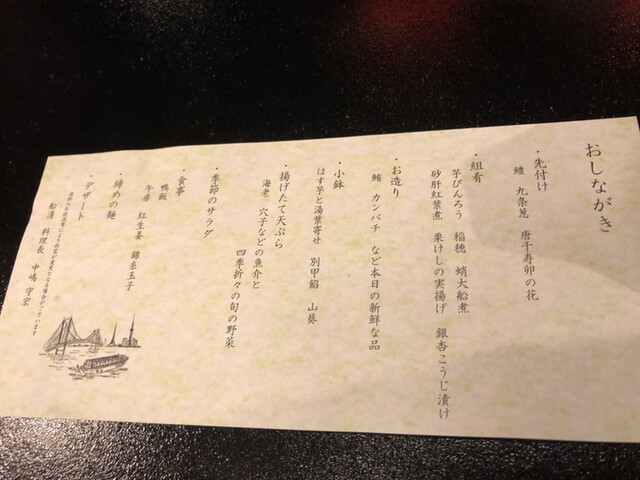 おしながき
・先付け
鱧 九条葱 唐千寿卯の花
・組肴
芋びんろう 稲穂 蛸大船煮
砂肝紅葉煮 栗けしの実揚げ 銀杏こうじ漬け
・お造り
鮪 カンパチ など本日の新鮮な品
・小鉢
はす芋と湯葉寄せ 別甲餡 山葵
・揚げたて天ぷら
海老 穴子などの魚介と
四季折々の旬の野菜
・季節のサラダ
・食事
鴨飯
牛蒡 紅生姜 錦糸玉子
・締めの麺
・デザート
船清 料理長 中嶋 守宏